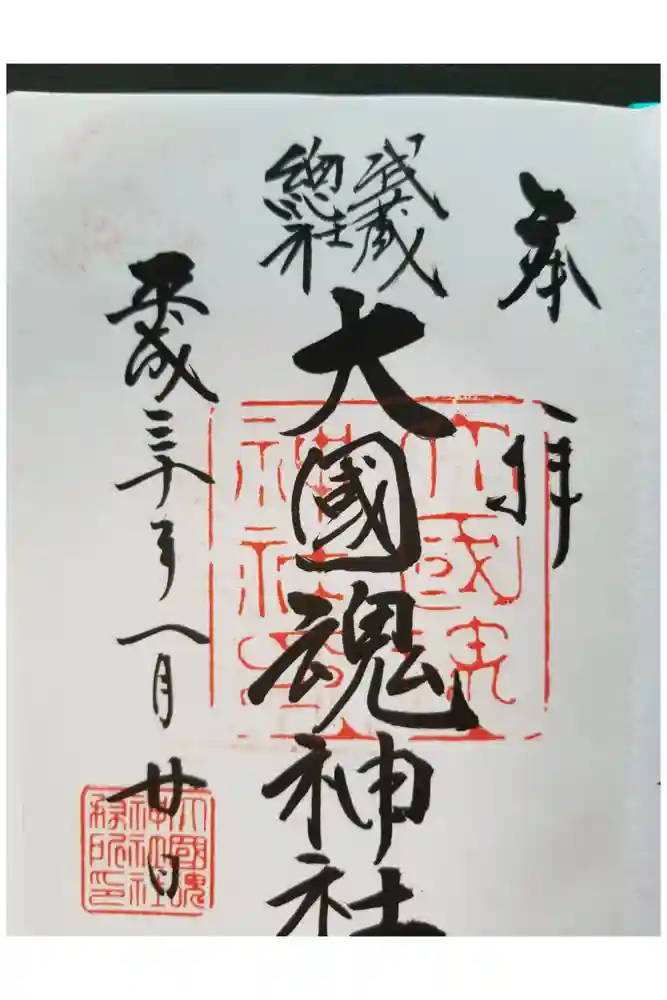 奉拝
武蔵
總社
大國魂神社
平成三十年八月廿日
大國魂
神社
大國魂
神社社
務所印